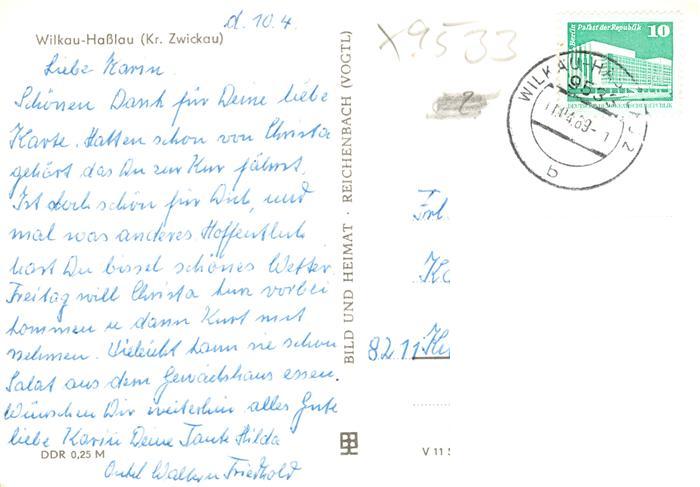 d. 10.4.
Wilkau-Haßlau (Kr. Zwickau)
Liebe Karin
Schönen Dank für Deine liebe
Karte. Hatten schon von Christa
gehört das Du zur Kur fährst.
Ist doch schön für Dich, und
mal was anderes Hoffentlich
hast Du bissel schönes Wetter.
Freitag will Christa kurz vorbei
kommen u dann Kurt mit
nehmen. Vieleicht kann sie schon
Salat aus dem Gewächshaus essen.
Wünschen Dir weiterhin alles Gute
liebe Karin Deine Tante Hilda
Onkel Friedhold
DDR 0,25 M
BILD UND HEIMAT · REICHENBACH (VOGTL)
X9533
?
Palast der Republik
10
WILKAU-HASSLAU 2
9533
11.04.89-1
b
Frl.
8211
V 11